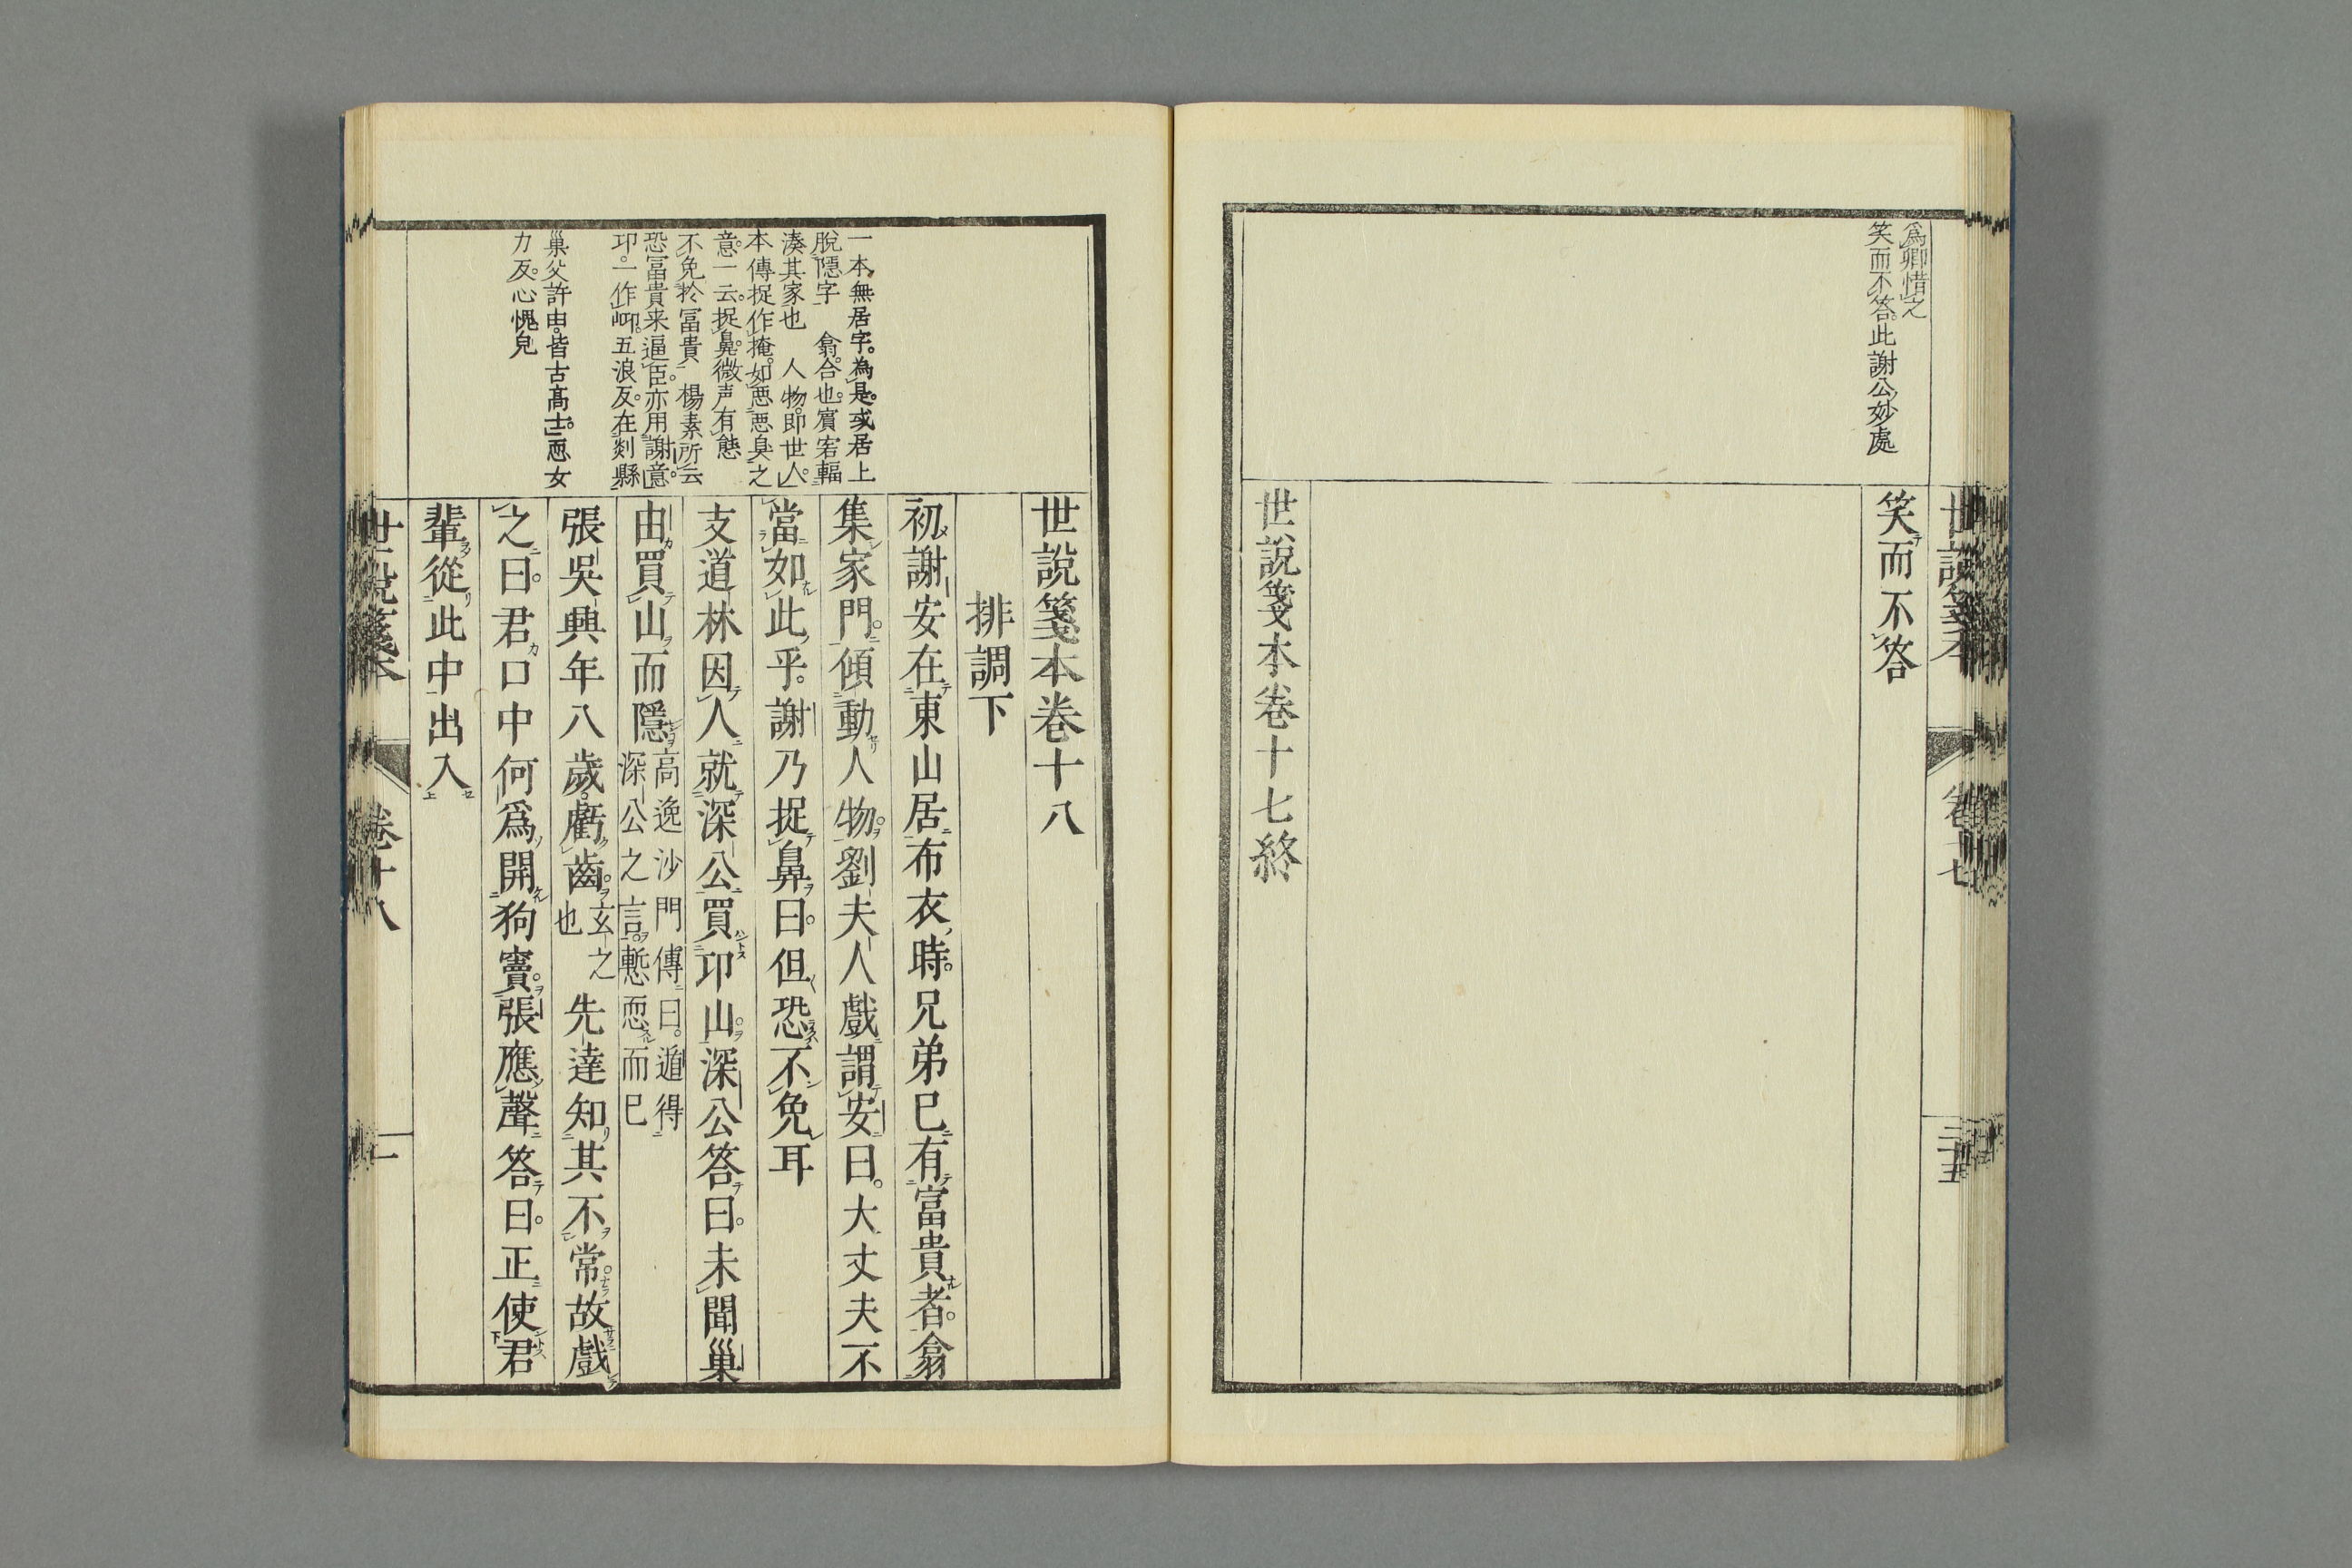 為卿惜之
笑而不答此謝公妙處
笑而不答
世說箋本卷十七終
一本無居字為是或居上
脫隱字 翕合也賓客輻
湊其家也 人物即世人
本傳捉作掩如惡惡臭之
意一云捉鼻微声有態
不免於富貴 楊素所云
恐富貴来逼臣亦用謝意
卬一作岇五浪反在剡縣
巢父許由皆古高士恧女
力反心愧皃
世說箋本卷十八
排調下
初謝安在東山居布衣時兄弟已有富貴者翕
集家門傾動人物劉夫人戲謂安曰大丈夫不
當如此乎謝乃捉鼻曰但恐不免耳
支道林因人就深公買卬山深公答曰未聞巢
由買山而隱高逸沙門傳曰遁得深公之言慙恧而已
張吳興年八歲虧齒玄之也先達知其不常故戲
之曰君口中何爲開狗竇張應聲答曰正使君
輩從此中出入
世說箋本 卷十八 一